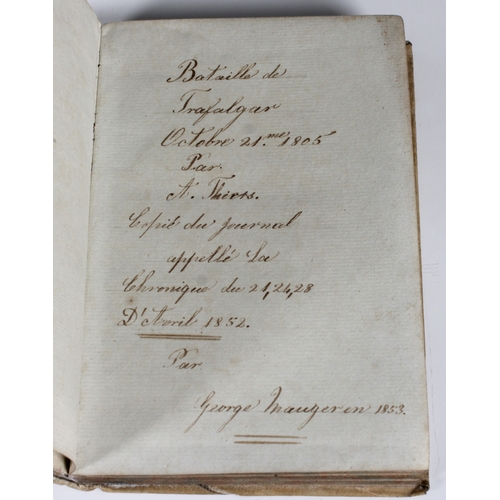 Bataille de
Trafalgar
Octobre 21.me 1805
Par
A. Thiers.
Copié du journal
appellé La
Chronique du 21, 24, 28
D'Avril 1852.
Par
George Mauger en 1853.